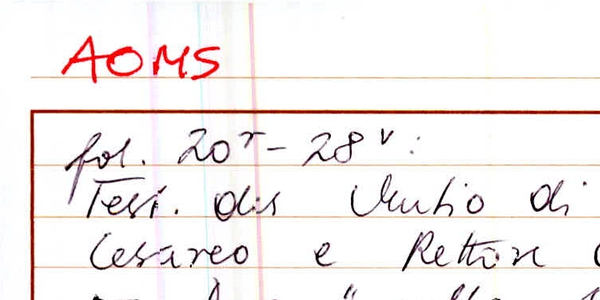 AOMS
fol. 20r - 28v:
Test. del Mutio di
Cesareo e Rettore